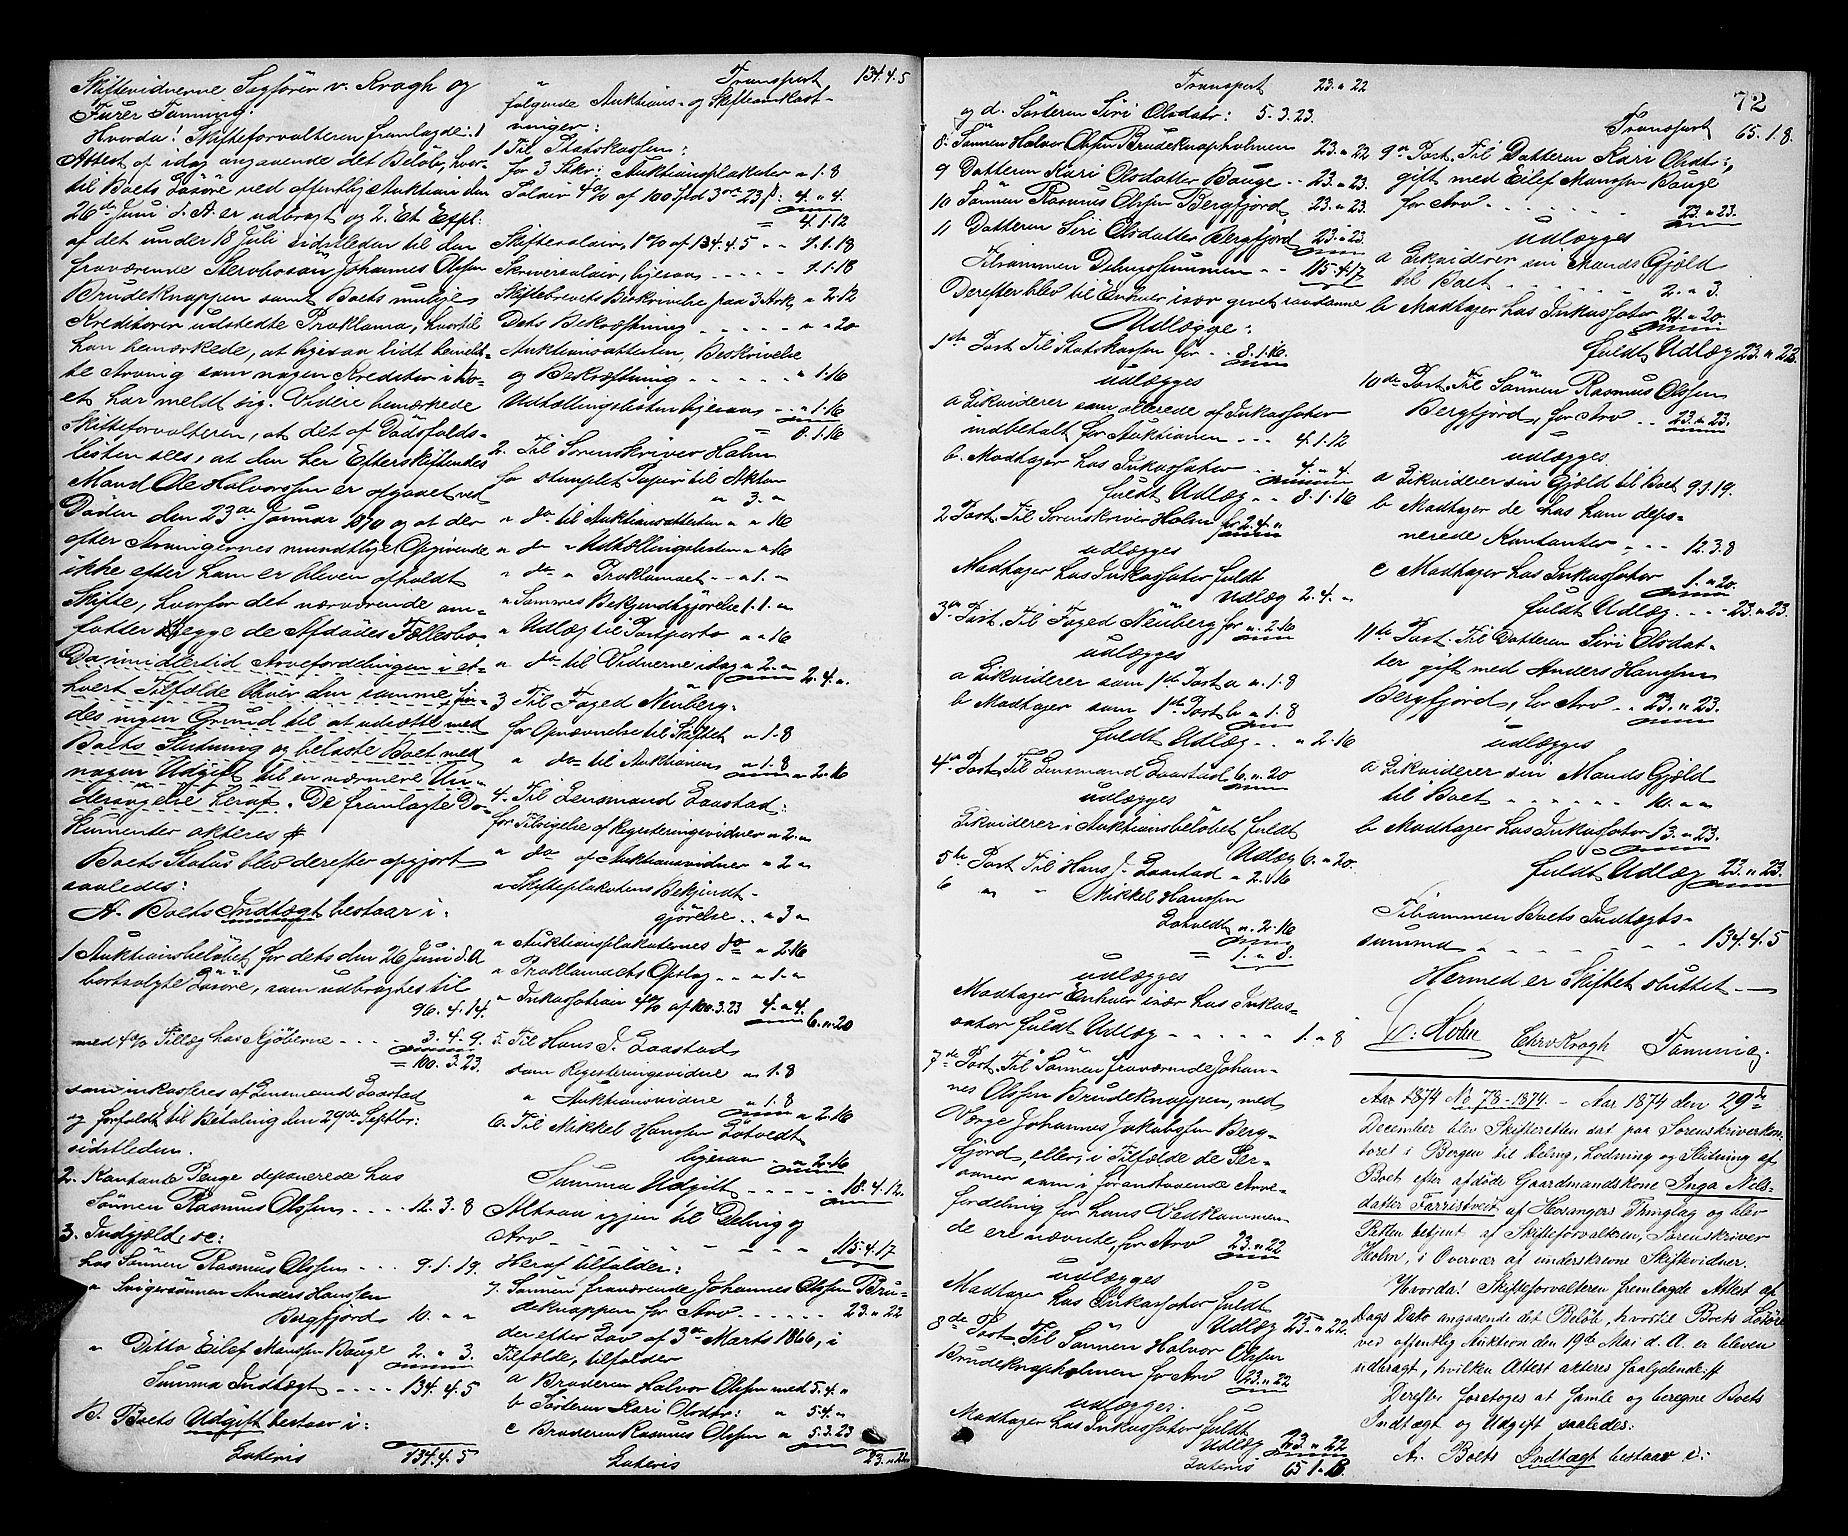 Skiftevidnerne Sagfører v. Krogh og
Furer Tømming.
Hvorda! Skifteforvalteren fremlagde: 1
Attest af idag angaaende det Beløb, hvor-
til Boets Løsøre ved offentlig Auktion den
26de Juni d. A. er udbragt og 2. Et Expl:
af det under 18 Juli sidstleden til den
fraværende Stervbosøn Johannes Olssen
Brudeknappen samt Boets mulige
Kreditorer udstedte Proklama, hvortil
han bemærkede, at ligesaa lidt bemeldt-
te Arving som nogen Kreditor i Bo-
et har meldt sig. Videre bemærkede
Skifteforvalteren, at det af Dødsfalds-
listen sees, at den her Efterskiftendes
Mand Ole Halvorssen er afgaaet ved
Døden den 23de Januar 1870 og at der
efter Arvingernes mundtlige Opgivende
ikke efter ham er bleven afholdt
Skifte, hvorfor det nærværende om-
fatter begge de Afdødes Fællesbo.
Da imidlertid Arvefordelingen i et-
hvert Tilfælde bliver den samme, fin-
des ingen Grund til at udsætte med
Boets Slutning og belaste Boet med
nogen Udgift til en nærmere Un-
dersøgelse heraf. De fremlagte Do-
kumenter akteres #
Boets Status blev derefter opgjort
saaledes:
A. Boets Indtægt bestaar i:
1 Auktionsbeløbet for dets den 26 Juni d. A
bortsolgte Løsøre, som udbragtes til
96. 4. 14.
med 4% Tillæg hos Kjøberne - - - 3. 4. 9.
= 100. 3. 23.
som inkasseres af Lensmand Laastad
og forfaldt til Betaling den 29de Septbr:
sidstleden.
2. Kontante Penge deponerede hos
Sønnen Rasmus Olssen - - - - 12. 3. 8
3. Indgjæld, se:
hos Sønnen Rasmus Olssen - - - 9. 1. 19.
" Svigersønnen Anders Hanssen
Bergfjord 10. " "
" Ditto Eilef Monssen Bauge 2. " 3.
Summa Indtægt - - - - 134. 4. 5
B. Boets Udgift bestaar i:
Lateris 134. 4. 5
Transport 134. 4. 5
følgende Auktions- og Skifteomkost-
ninger:
1 Til Statskassen:
for 3 Stkr: Auktionsplakater " 1. 8
Salair 4% of 100 Spd 3 ort 23 s: 4. " 4.
= 4. 1. 12
Skiftesalair, 1% af 134. 4. 5 - - 1. 1. 18
Skriversalair, ligesaa - - - - - 1. 1. 18
Skiftebrevets Beskrivelse paa 3 Ark, " 2. 12
Dets Bekræftning - - - - - " " 20
Auktionsattesten, Beskrivelse
og Bekræftning - - - - - - " 1. 16
Udtællingslisten ligesaa - - " 1. 16
= 8. 1. 16
2. Til Sorenskriver Holm
for stemplet Papir til Akten
" 3. "
" do til Auktionsattesten " " 16
" do " Udtællingslisten " " 16
" do " Proklamaet - - " 1. "
" Sammes Bekjendtgjørelse 1. 1. "
" Udlæg til Postporto " " 16
" do til Vidnerne idag " 2. " 2. 4. ".
3 Til Foged Neuberg.
for Opnævnelse til Skiftet " 1. 8
" do til Auktionen " 1. 8 " 2. 16
4. Til Lensmand Laastad:
for Tilsigelse af Registeringsvidner " 2. "
" do af Auktionsvidner " 2. "
" Skifteplakatens Bekjendt-
gjørelse . . " 3 "
" Auktionsplakaternes do " 2. 16
" Proklamaets Opslag - - " 1. "
" Inkassation 4% af 100. 3. 23 4. " 4. 6. " 20
5. Til Hans J. Laastad
som Registeringsvidne " 1. 8
" Auktionsvidne " 1. 8 " 2. 16
6. Til Mikkel Hanssen Lotvedt
ligesaa - - " 2. 16
Summa Udgift - - - - - 18. 4. 12.
Altsaa igjen til Deling og
Arv - - - - - - - 115. 4. 17
Heraf tilfalder:
7. Sønnen fraværende Johannes Olssen Bru-
deknappen for Arv - - - - - - 23. " 22
der efter Lov af 3de Marts 1866, i
Tilfælde, tilfalder
a Broderen Halvor Olssen med 5. 4. "
b Søsteren Kari Olsdtr: " 5. 4. "
c Broderen Rasmus Olssen " 5. 3. 23
Lateris 23. " 22
Transport 23. " 22
og d. Søsteren Siri Olsdatr: 5. 3. 23.
8. Sønnen Halvor Olssen Brudeknapholmen 23. " 22
9 Datteren Kari Olsdatter Bauge - - 23. " 23.
10 Sønnen Rasmus Olssen Bergfjord 23. " 23.
11 Datteren Siri Olsdatter Bergfjord 23. " 23.
Tilsammen Delingssummen - - 115. 4. 17
Derefter blev til Enhver især gjevet saadanne
Udlægge:
1ste Post. Til Statskassen for - - 8. 1. 16.
udlægges
a Likviderer som allerede af Inkassator
indbehalt for Auktionen - - - 4. 1. 12
b. Modtager hos Inkassator - - 4. " 4.
fuldt Udlæg - - 8. 1. 16
2 Post. Til Sorenskriver Holm for 2. 4. "
udlægges
Modtager hos Inkassator fuldt
Udlæg 2. 4. "
3die Post. Til Foged Neuberg for ". 2. 16
udlægges
a Likviderer som 1ste Post a ". 1. 8
b Modtager som 1ste Post b ". 1. 8
fuldt Udlæg - - " 2. 16
4de Post. Til Lensmand Laastad 6. " 20
udlægges
Likviderer i Auktionsbeløbet fuldt
Udlæg 6. " 20.
5te Post Til Hans J. Laastad " 2. 16
6 " " Mikkel Hanssen
Lotvedt ". 2. 16
= 1. " 8.
udlægges
Modtager Enhver især hos Inkas-
sator fuldt Udlæg - - - - - 1. " 8
7de Post. Til Sønnen fraværende Johan-
nes Olssen Brudeknappen, med
Værge Johannes Jakobssen Berg-
fjord, eller, i Tilfælde de Per-
soner som i foranstaaende Arve-
fordeling for hans Vedkommen-
de ere nævnte, for Arv 23. " 22
udlægges
Modtager hos Inkassator fuldt
Udlæg 23. " 22.
8de Post. Til Sønnen Halvor Olssen
Brudeknapholmen for Arv 23. " 22
udlægges.
Modtager hos Inkassator fuldt
Udlæg 23. " 22
Lateris 65. 1. 8.
72
Transport 65. 1. 8.
9de Post. Til Datteren Kari Olsdtr:,
gift med Eilef Monssen Bauge
for Arv - - - - - - 23. " 23.
udlægges
a Likviderer sin Mands Gjæld
til Boet - - - - - 2. " 3.
b Modtager hos Inkassator 21. " 20.
fuldt Udlæg 23. " 23
10de Post. Til Sønnen Rasmus Olssen
Bergfjord, for Arv - - 23. " 23.
udlægges.
a Likviderer sin Gjæld til Boet 9. 1. 19.
b Modtager de hos ham depo-
nerede Kontanter - - - 12. 3. 8
c Modtager hos Inkassator 1. " 20.
fuldt Udlæg - - - - 23. " 23.
11te Post. Til Datteren Siri Olsdat-
ter gift med Anders Hanssen
Bergfjord, for Arv - - 23. " 23.
udlægges
a Likviderer sin Mands Gjæld
til Boet - - - - - - 10. " "
b Modtager hos Inkassator 13. " 23.
fuldt Udlæg 23. " 23.
Tilsammen Boets Indtægts-
summa - - - - - - - 134. 4. 5
Hermed er Skiftet sluttet. —
Holm Chr v Krogh Tømming.
Aar 1874 No 78-1874. - Aar 1874 den 29de
December blev Skifteretten sat paa Sorenskriverkon-
toret i Bergen til Deling, Lodning og Slutning af
Boet efter afdøde Gaardmandskone Inga Nels-
datter Farristveit af Hosangers Thinglag og blev
Retten betjent af Skifteforvalteren, Sorenskriver
Holm, i Overvær af underskrevne Skiftevidner.
Hvorda! Skifteforvalteren fremlagde Attest af
Dags Dato angaaende det Beløb, hvortil Boets Løsøre
ved offentlig Auktion den 19de Mai d. A. er bleven
udbragt, hvilken Attest akteres saalydende: #
Derefter foretoges at samle og beregne Boets
Indtægt og Udgift saaledes:
A. Boets Indtægt bestaar i: